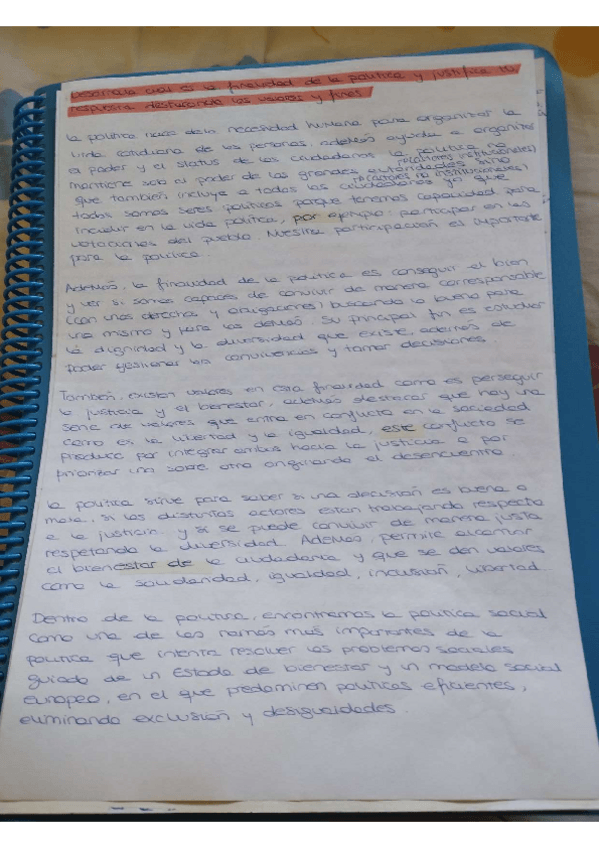 Desarrolla cuál es la finalidad de la política y justifica tu
respuesta destacando los valores y fines
La política nace de la necesidad humana para organizar la
vida cotidiana de las personas, además ayuda a organizar
el poder y el status de los ciudadanos. La política no
(actores institucionales)
mantiene solo el poder de las grandes autoridades sino
(actores no institucionales)
que también incluye a todos los ciudadanos ya que
todos somos seres políticos porque tenemos capacidad para
incluir en la vida política, por ejemplo: participar en las
votaciones del pueblo. Nuestra participación es importante
para la política.
Además, la finalidad de la política es conseguir el bien
y ver si somos capaces de convivir de manera corresponsable
(con unos derechos y obligaciones) buscando lo bueno para
uno mismo y para los demás. Su principal fin es estudiar
la dignidad y la diversidad que existe, además de
poder gestionar las convivencias y tomar decisiones
También, existen valores en esta finalidad como es perseguir
la justicia y el bienestar, además destacar que hay una
serie de valores que entra en conflicto en la sociedad
como es la libertad y la igualdad, este conflicto se
produce por integrar ambos hacia la justicia o por
priorizar uno sobre otro originando el desencuentro
La política sirve para saber si una decisión es buena o
mala, si los distintos actores están trabajando respecto
a la justicia y si se puede convivir de manera justa
respetando la diversidad. Además, permite alcanzar
el bienestar de la ciudadanía y que se den valores
como la solidaridad, igualdad, inclusión, libertad
Dentro de la política, encontramos la política social
como una de las ramas más importantes de la
política que intenta resolver los problemas sociales
guiado de un Estado de bienestar y un modelo social
europeo, en el que predominen políticas eficientes,
eliminando exclusión y desigualdades.